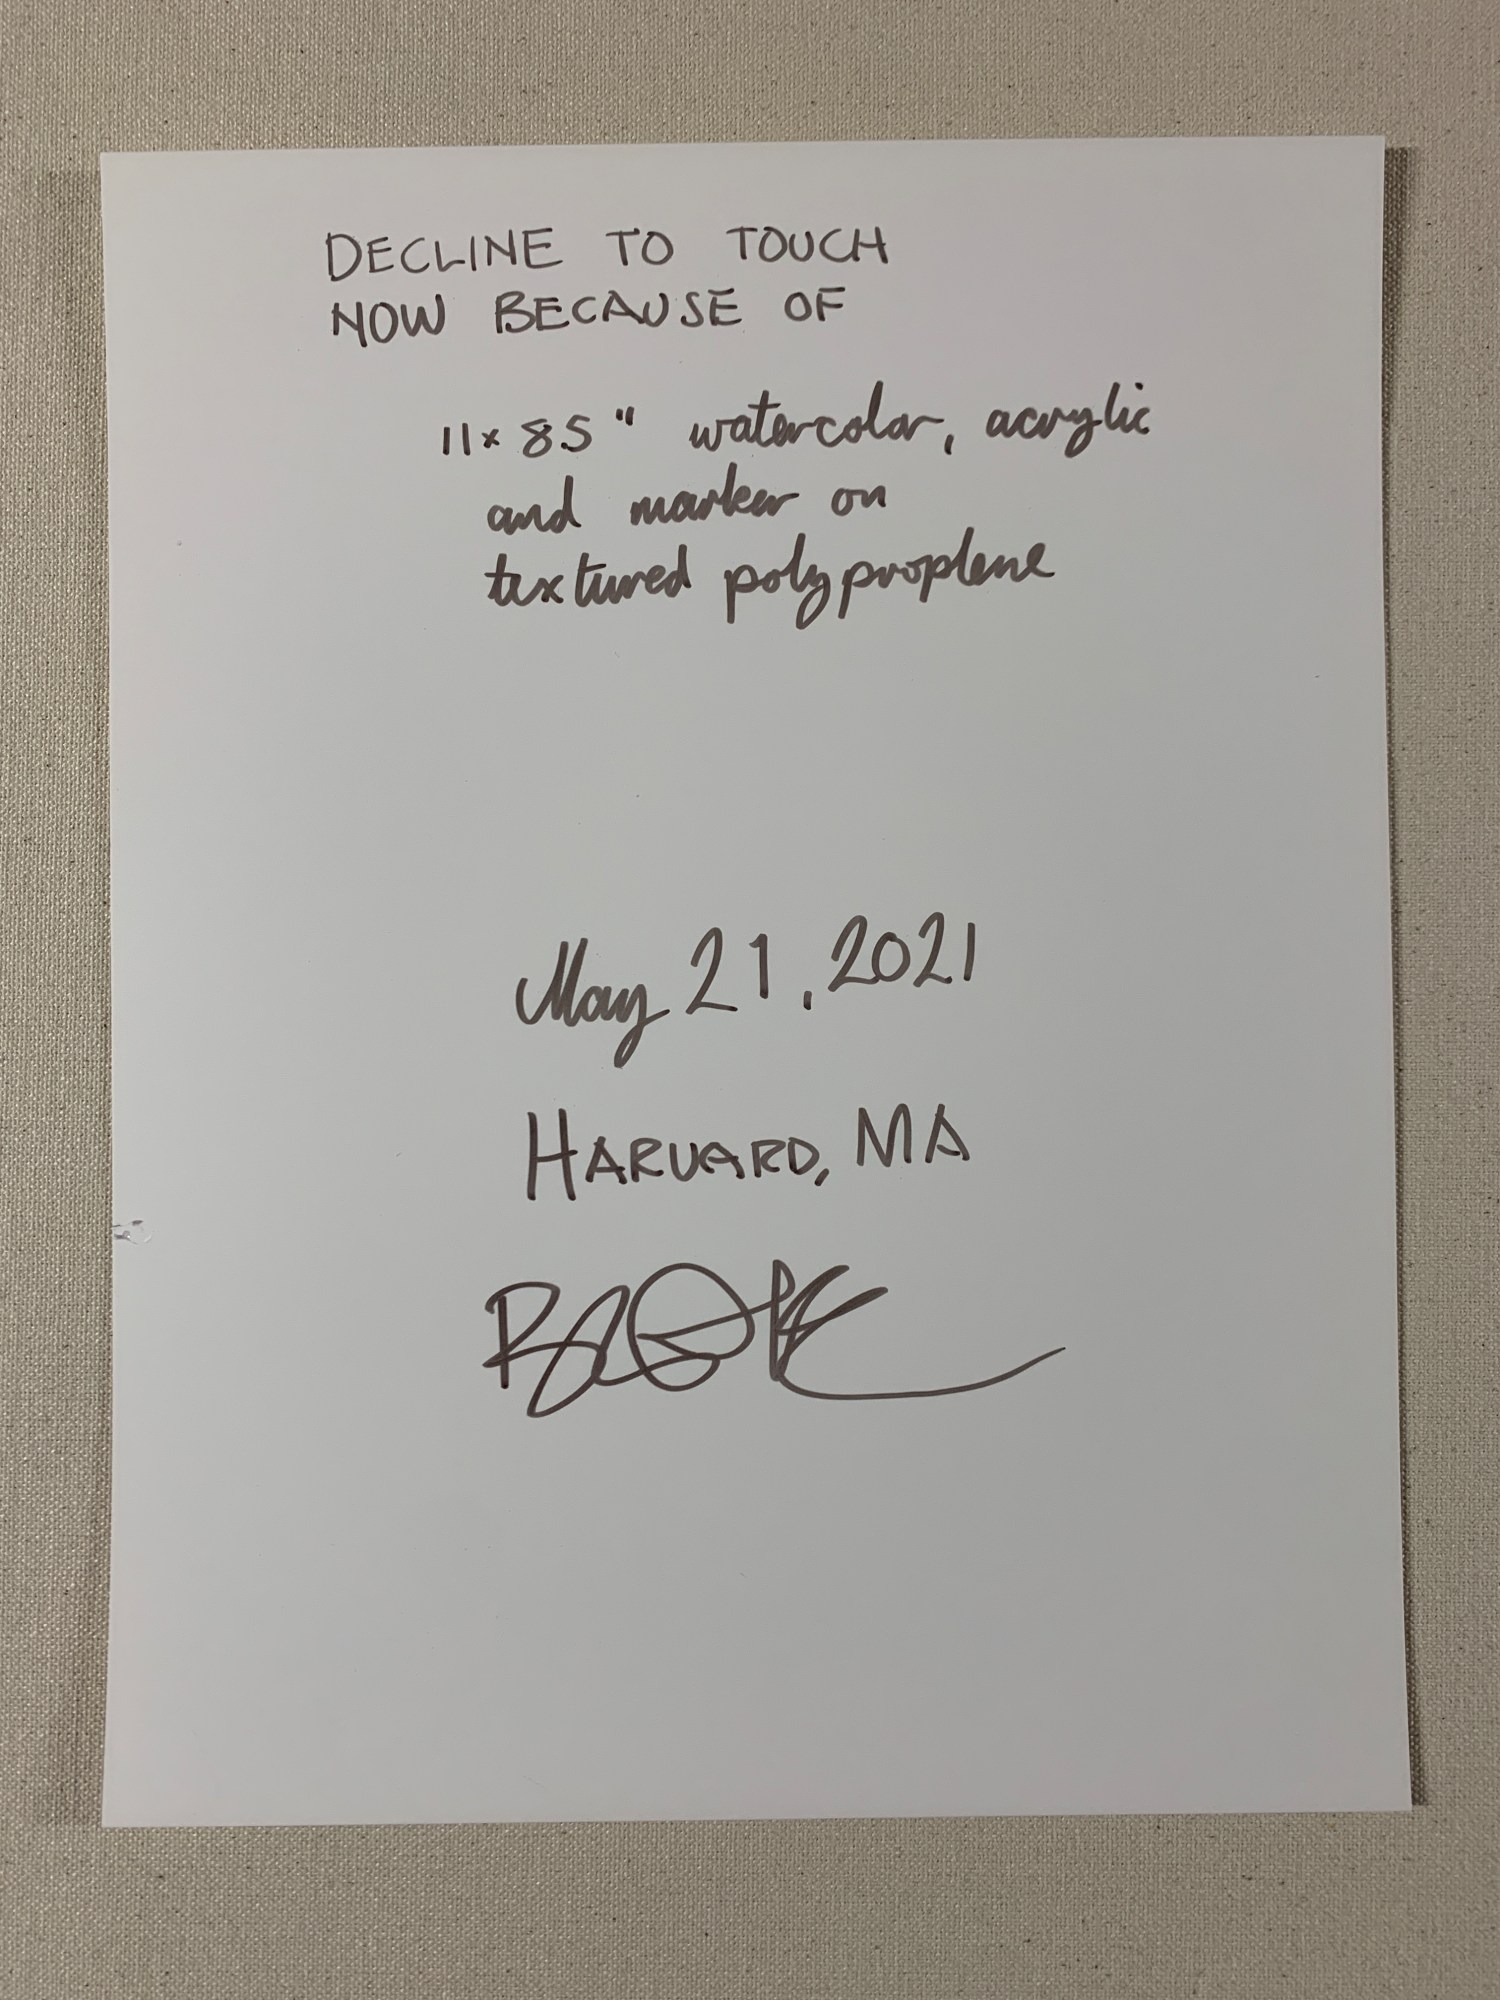 DECLINE TO TOUCH
NOW BECAUSE OF
11 x 8.5" watercolor, acrylic
and marker on
textured polyproplene
May 21, 2021
HARVARD, MA